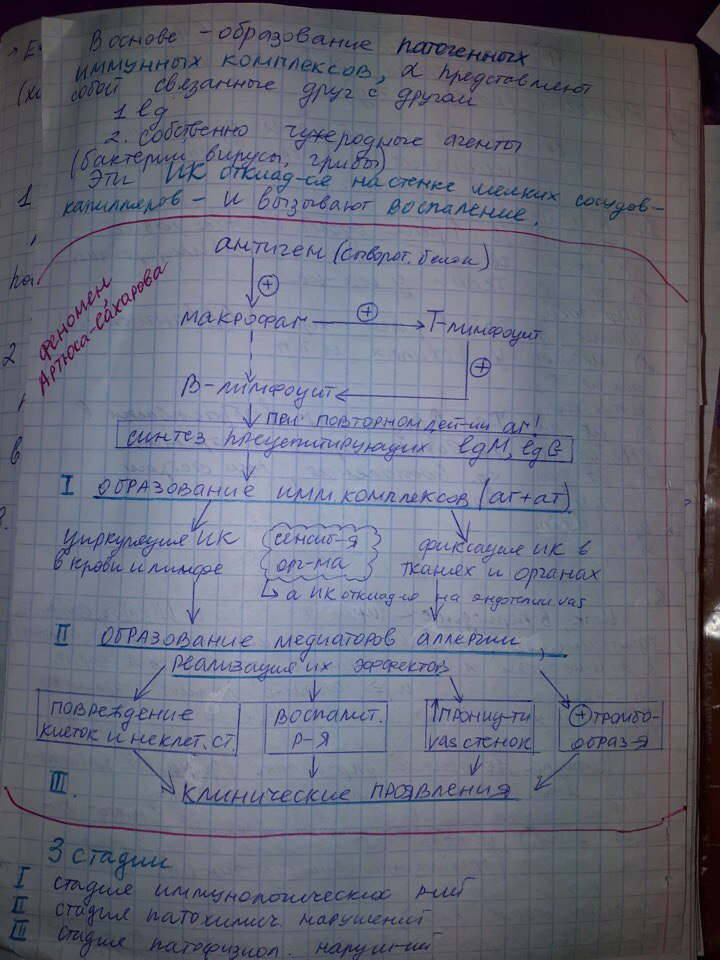 В основе - образование патогенных
иммунных комплексов, α представляют
собой связанные друг с другом
1 Ig
2. Собственно чужеродные агенты
(бактерии, вирусы, грибы)
Эти ИК отклад-ся на стенке мелких сосудов -
капилляров - и вызывают воспаление.
Феномен
Артюса-Сахарова
антиген (сыворот. белок)
⊕
макрофаг ⊕ Т-лимфоцит
⊕
В-лимфоцит
при повторном дей-ии аг!
синтез преципитирующих IgM, IgG
I образование имм комплексов (аг+ат)
циркуляция ИК
в крови и лимфе
сенсиб-я
орг-ма
фиксация ИК в
тканях и органах
а ИК отклад-ся на эндотелии vas
II образование медиаторов аллергии,
реализация их эффектов
повреждение
клеток и неклет. ст
воспалит.
р-я
↑прониц-ти
vas стенок
⊕тромбо-
образ-я
III. клинические проявления
3 стадии
I стадия иммунологических р-ий
II стадия патохимич. нарушений
III стадия патофизиол. наруш-ий